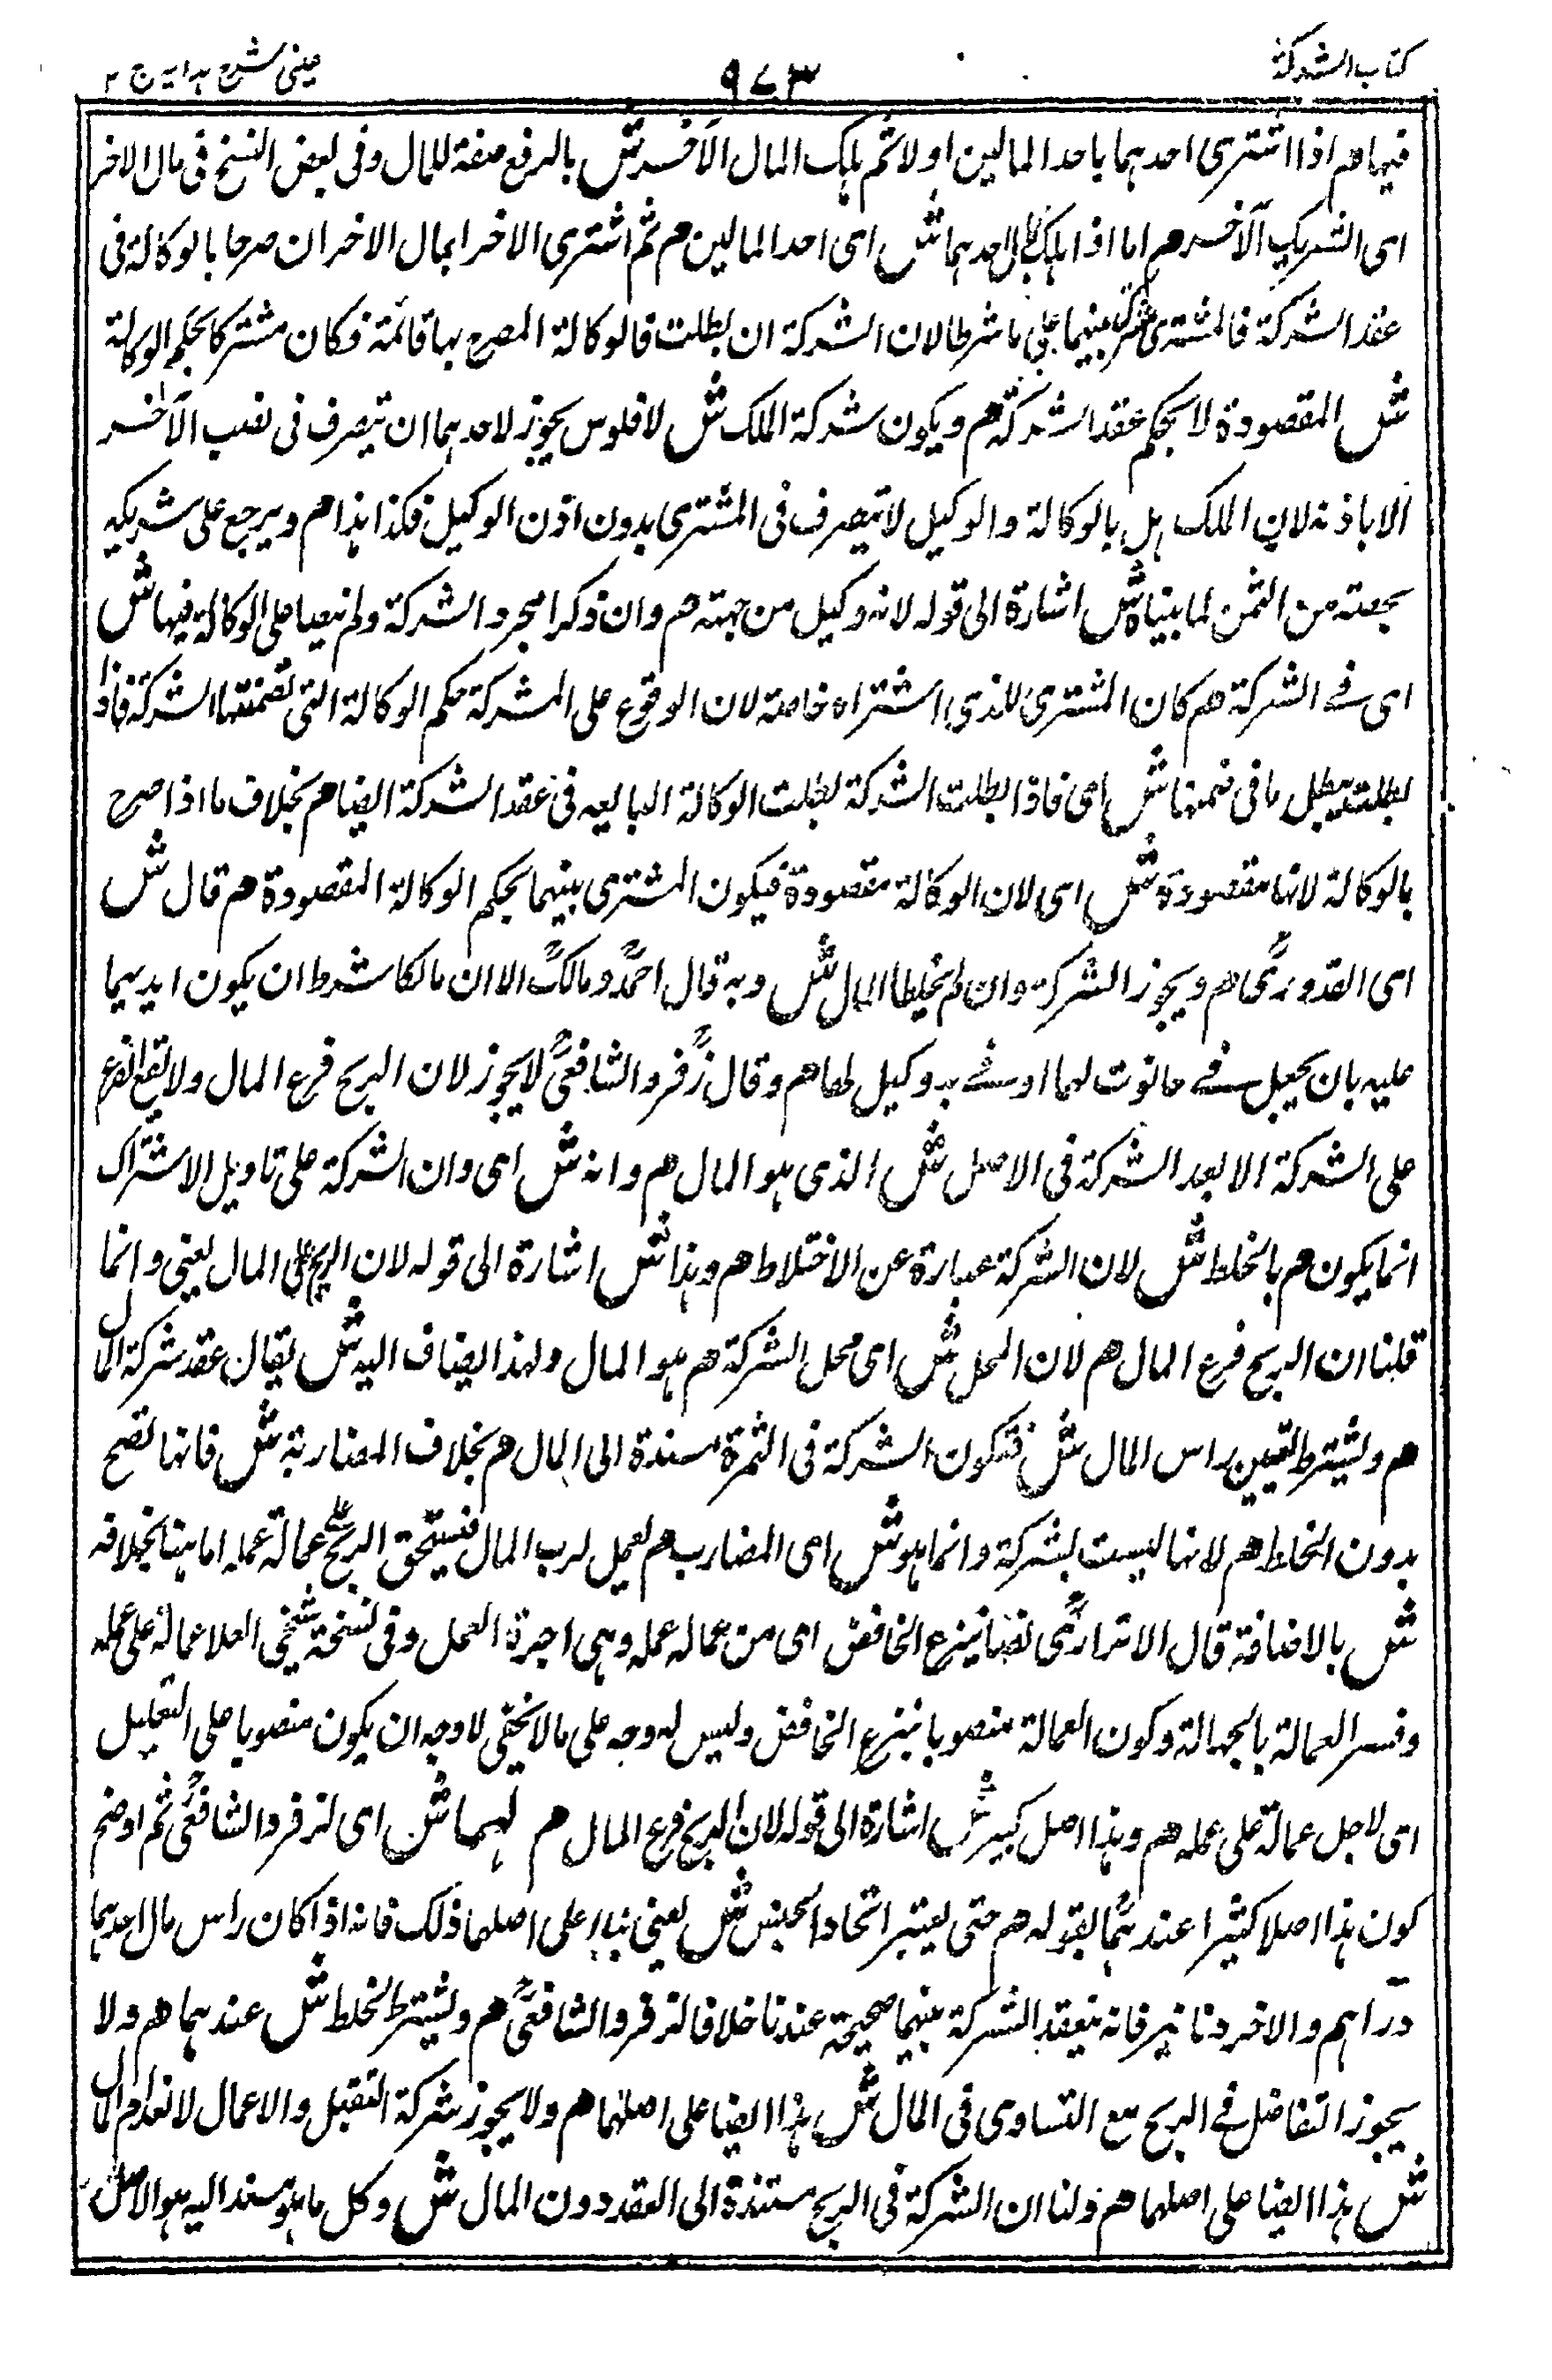 كتاب الشركة
٩٧٣
عینی شرح ہدایہ ج ٢
فيها م اذا اشترى احدهما باحد المالين اولا ثم هلك المال الآخر ش بالرفع صفة للمال وفى بعض النسخ فى مال الاخر
اى الشريك الآخر م اما اذا هلك مال احدهما ش اى احد المالين م ثم اشترى الاخر بمال الاخر ان صرحا بالوكالة فى
عقد الشركة فالمشترى مشترك بينهما على ما شرطا لان الشركة ان بطلت فالوكالة المصرح بها قائمة فكان مشتركا بحكم الوكالة
ش المقصودة لا بحكم عقد الشركة م ويكون شركة الملك ش لا فلوس يجوز لاحدهما ان يتصرف فى نصيب الآخر
الا باذنه لان الملك بالوكالة والوكيل لا يتصرف فى المشترى بدون اذن الوكيل فكذا هذا م ويرجع على شريكه
بحصته من الثمن لما بيناه ش اشارة الى قوله لانه وكيل من جهته م وان ذكرا مجرد الشركة ولم ينصا على الوكالة فيها ش
اى فے الشركة م كان المشترى للذى اشتراه خاصة لان الوقوع على الشركة حكم الوكالة التى تضمنتها الشركة فاذا
بطلت يبطل ما فى ضمنها ش اى فاذا بطلت الشركة بطلت الوكالة التابعه فى عقد الشركة ايضا م بخلاف ما اذا صرح
بالوكالة لانها مقصودة ش اى لان الوكالة مقصودة فيكون المشترى بينهما بحكم الوكالة المقصودة م قال ش
اى القدورى م ويجوز الشركة وان لم يخلطا المال ش وبه قال احمد ومالك الا ان مالكا شرط ان يكون ايديهما
عليه بان يجعل فے حانوت لهما او فے يد وكيل لهما م وقال زفر والشافعى لا يجوز لان الربح فرع المال ولا يقع الفرع
على الشركة الا بعد الشركة فى الاصل ش الذى هو المال م وانه ش اى وان الشركة على تاويل الاشتراك
انما يكون م بالخلط ش لان الشركة عبارة عن الاختلاط م وهذا ش اشارة الى قوله لان الربح على المال يعنى وانما
قلنا ان الربح فرع المال م لان المحل ش اى محل الشركة م هو المال ولهذا يضاف اليه ش يقال عقد شركة المال
م ويشترط تعيين راس المال ش فتكون الشركة فى الثمرة مسندة الى المال م بخلاف المضاربة ش فانها تصح
بدون الخلط م لانها ليست بشركة وانما هو ش اى المضارب م يعمل لرب المال فيستحق الربح عمالة عمله اما هنا بخلافه
ش بالاضافة قال الاترازى نصبا بنزع الخافض اى من عماله عمله وهى اجرة العمل وفى نسخة شيخى العلا عمالة على عمله
وفسر العمالة بالجهالة وكون العمالة منصوبا بنزع الخافض وليس له وجه على ما لا يخفى لا وجه ان يكون منصوبا على التعليل
اى لاجل عمالة على عمله م وهذا اصل كبير ش اشارة الى قوله لان الربح فرع المال م لهما ش اى لزفر والشافعى ثم اوضح
كون هذا اصلا كثيرا عندهما بقوله م حتى يعتبر اتحاد الجنس ش يعنى بناء على اصلهما ذلك فانه اذا كان راس مال احدهما
دراهم والاخر دنانير فانه ينعقد الشركة بينهما صحيحة عندنا خلافا لزفر والشافعى م ويشترط الخلط ش عندهما م ولا
يجوز التفاضل فے الربح مع التساوى فى المال ش هذا ايضا على اصلهما م ولا يجوز شركة التقبل والاعمال لانعدام المال
ش هذا ايضا على اصلهما م ولنا ان الشركة فى الربح مستندة الى العقد دون المال ش وكل ما هو مسند اليه هو الاصل